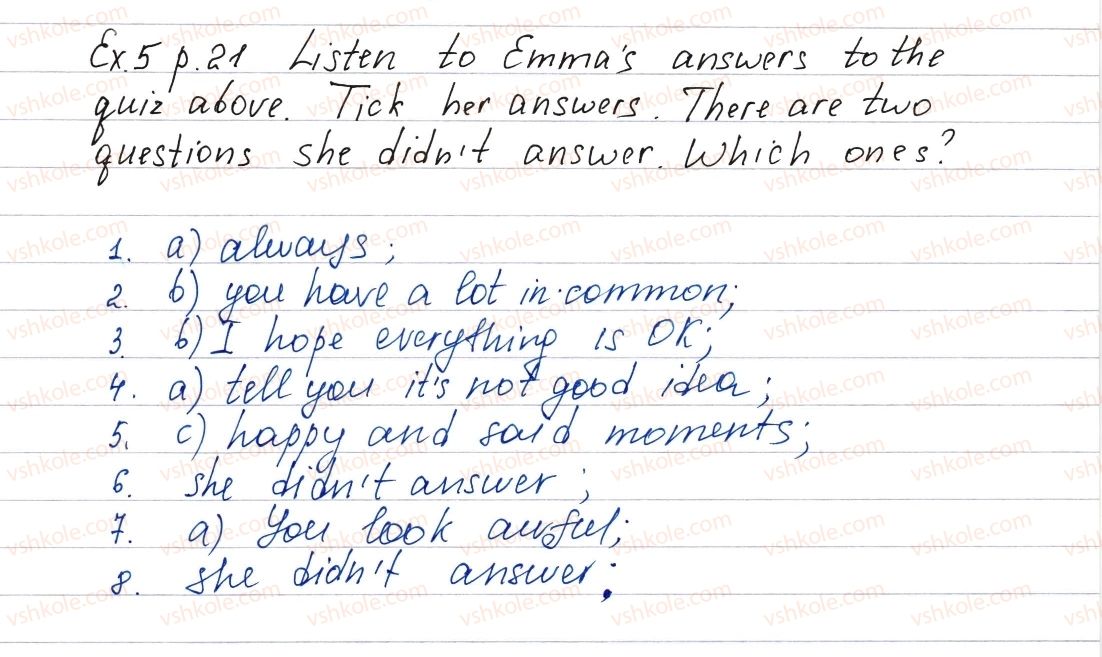 Ex.5 p.21 Listen to Emma's answers to the
quiz above. Tick her answers. There are two
questions she didn't answer. Which ones?
1. a) always;
2. b) you have a lot in common;
3. b) I hope everything is OK;
4. a) tell you it's not good idea;
5. c) happy and said moments;
6. she didn't answer;
7. a) You look awful;
8. she didn't answer;